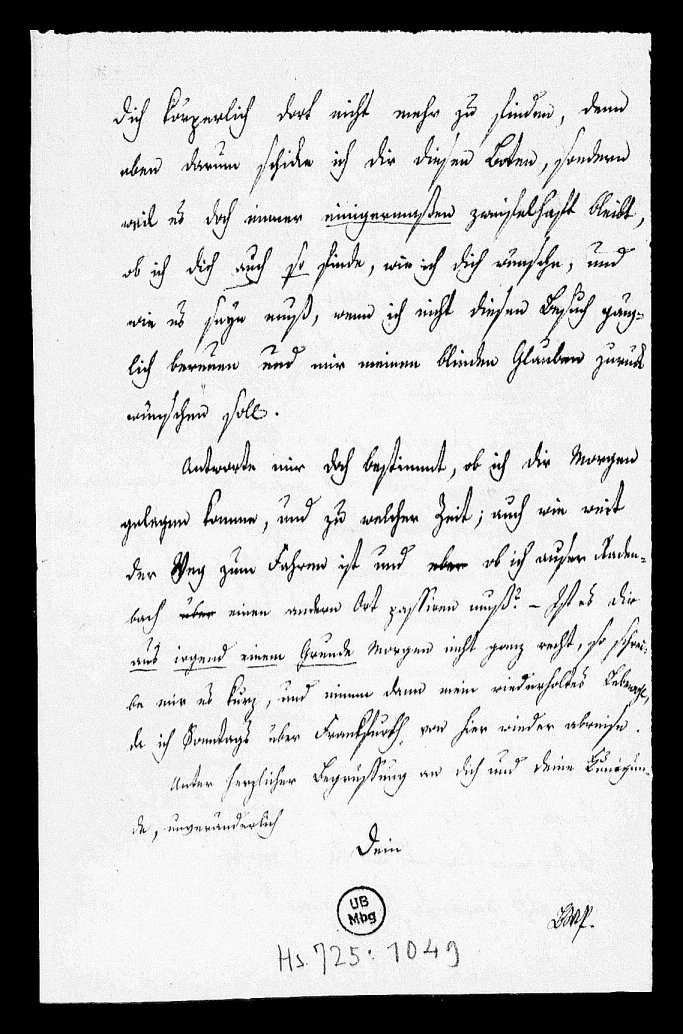 Dich körperlich dort nicht mehr zu finden, denn
eben darum schicke ich Dir diesen Boten, sondern
weil es doch immer einigermaßen zweifelhaft bleibt,
ob ich Dich auch so finde, wie ich Dich wünsche, und
wie es seyn muß, wenn ich nicht diesen Besuch gänz-
lich bereuen und mir meinen blinden Glauben zurück
wünschen soll.
Antworte mir doch bestimmt, ob ich Dir Morgen
gelegen komme, und zu welcher Zeit; auch wie weit
der Weg zum Fahren ist und über ob ich außer Raden-
bach über einen andern Ort passiren muß? – Ist es Dir
aus irgend einem Grunde Morgen nicht ganz recht, so schrei-
be mir es kurz, und nimm dann mein wiederholtes Lebewohl,
da ich Sonntags über Frankfurth von hier wieder abreise.
Unter herzlicher Begrüssung an Dich und Deine Kunigun-
de, unveränderlich
Dein
UB
Mbg
Hs. 725: 1049